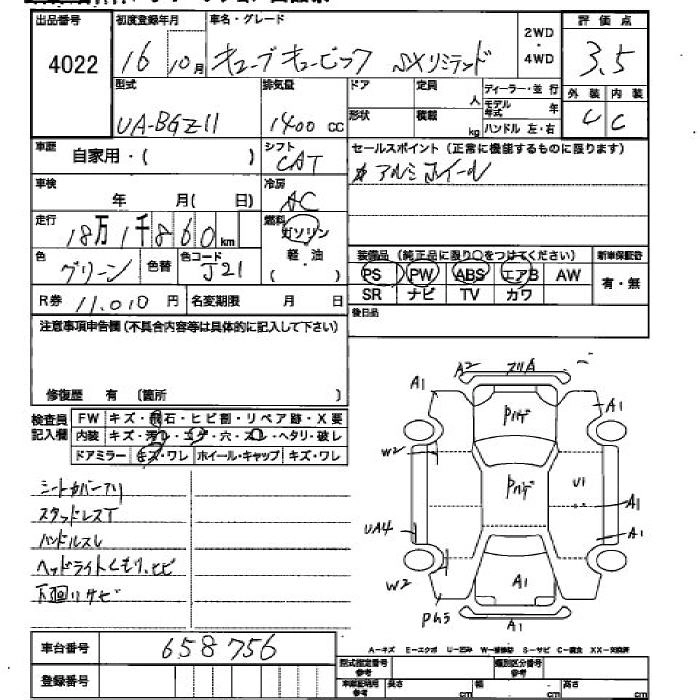 出品番号 初度登録年月 車名・グレード 2WD ・ 4WD 評価点
4022 16 10月 キューブキュービック SXリミテッド 3.5
型式 排気量 ドア 定員 人 ディーラー・並行 外装 内装
UA-BGZ11 1400 CC 形状 積載 kg モデル年式 年 ハンドル 左・右 C C
車歴 自家用・( ) シフト CAT セールスポイント(正常に機能するものに限ります)
アルミホイール
車検 年 月(日) 冷房 AC
走行 18万1千860km 燃料 ガソリン 軽・油 ( )
色 グリーン 色替 色コード J21
装備品(純正品に限り○をつけてください) 新車保証書
PS PW ABS エアB AW 有・無
SR ナビ TV カワ
R券 11,010円 名変期限 月 日 後日品
注意事項申告欄(不具合内容等は具体的に記入して下さい)
修復歴 有 (箇所 )
検査員記入欄 FW キズ・飛石・ヒビ割・リペア跡・X要
内装 キズ・汚レ・コゲ・穴・スレ・ヘタリ・破レ
ドアミラー キズ・ワレ ホイール・キャップ キズ・ワレ
シートカバーアリ
スタッドレスT
ハンドルスレ
ヘッドライトくもり、ヒビ
下廻りサビ
A2
A1
Pハゲ
A1
W2
Pハゲ
U1
A1
UA4
A1
W2
A1
A1
車台番号 658756
登録番号
A-キズ E-エクボ U-凹み W-補修跡 S-サビ C-腐食 XX-交換済
型式指定番号 参考 類別区分番号 参考
車庫証明用 参考 長さ cm 幅 cm 高さ cm